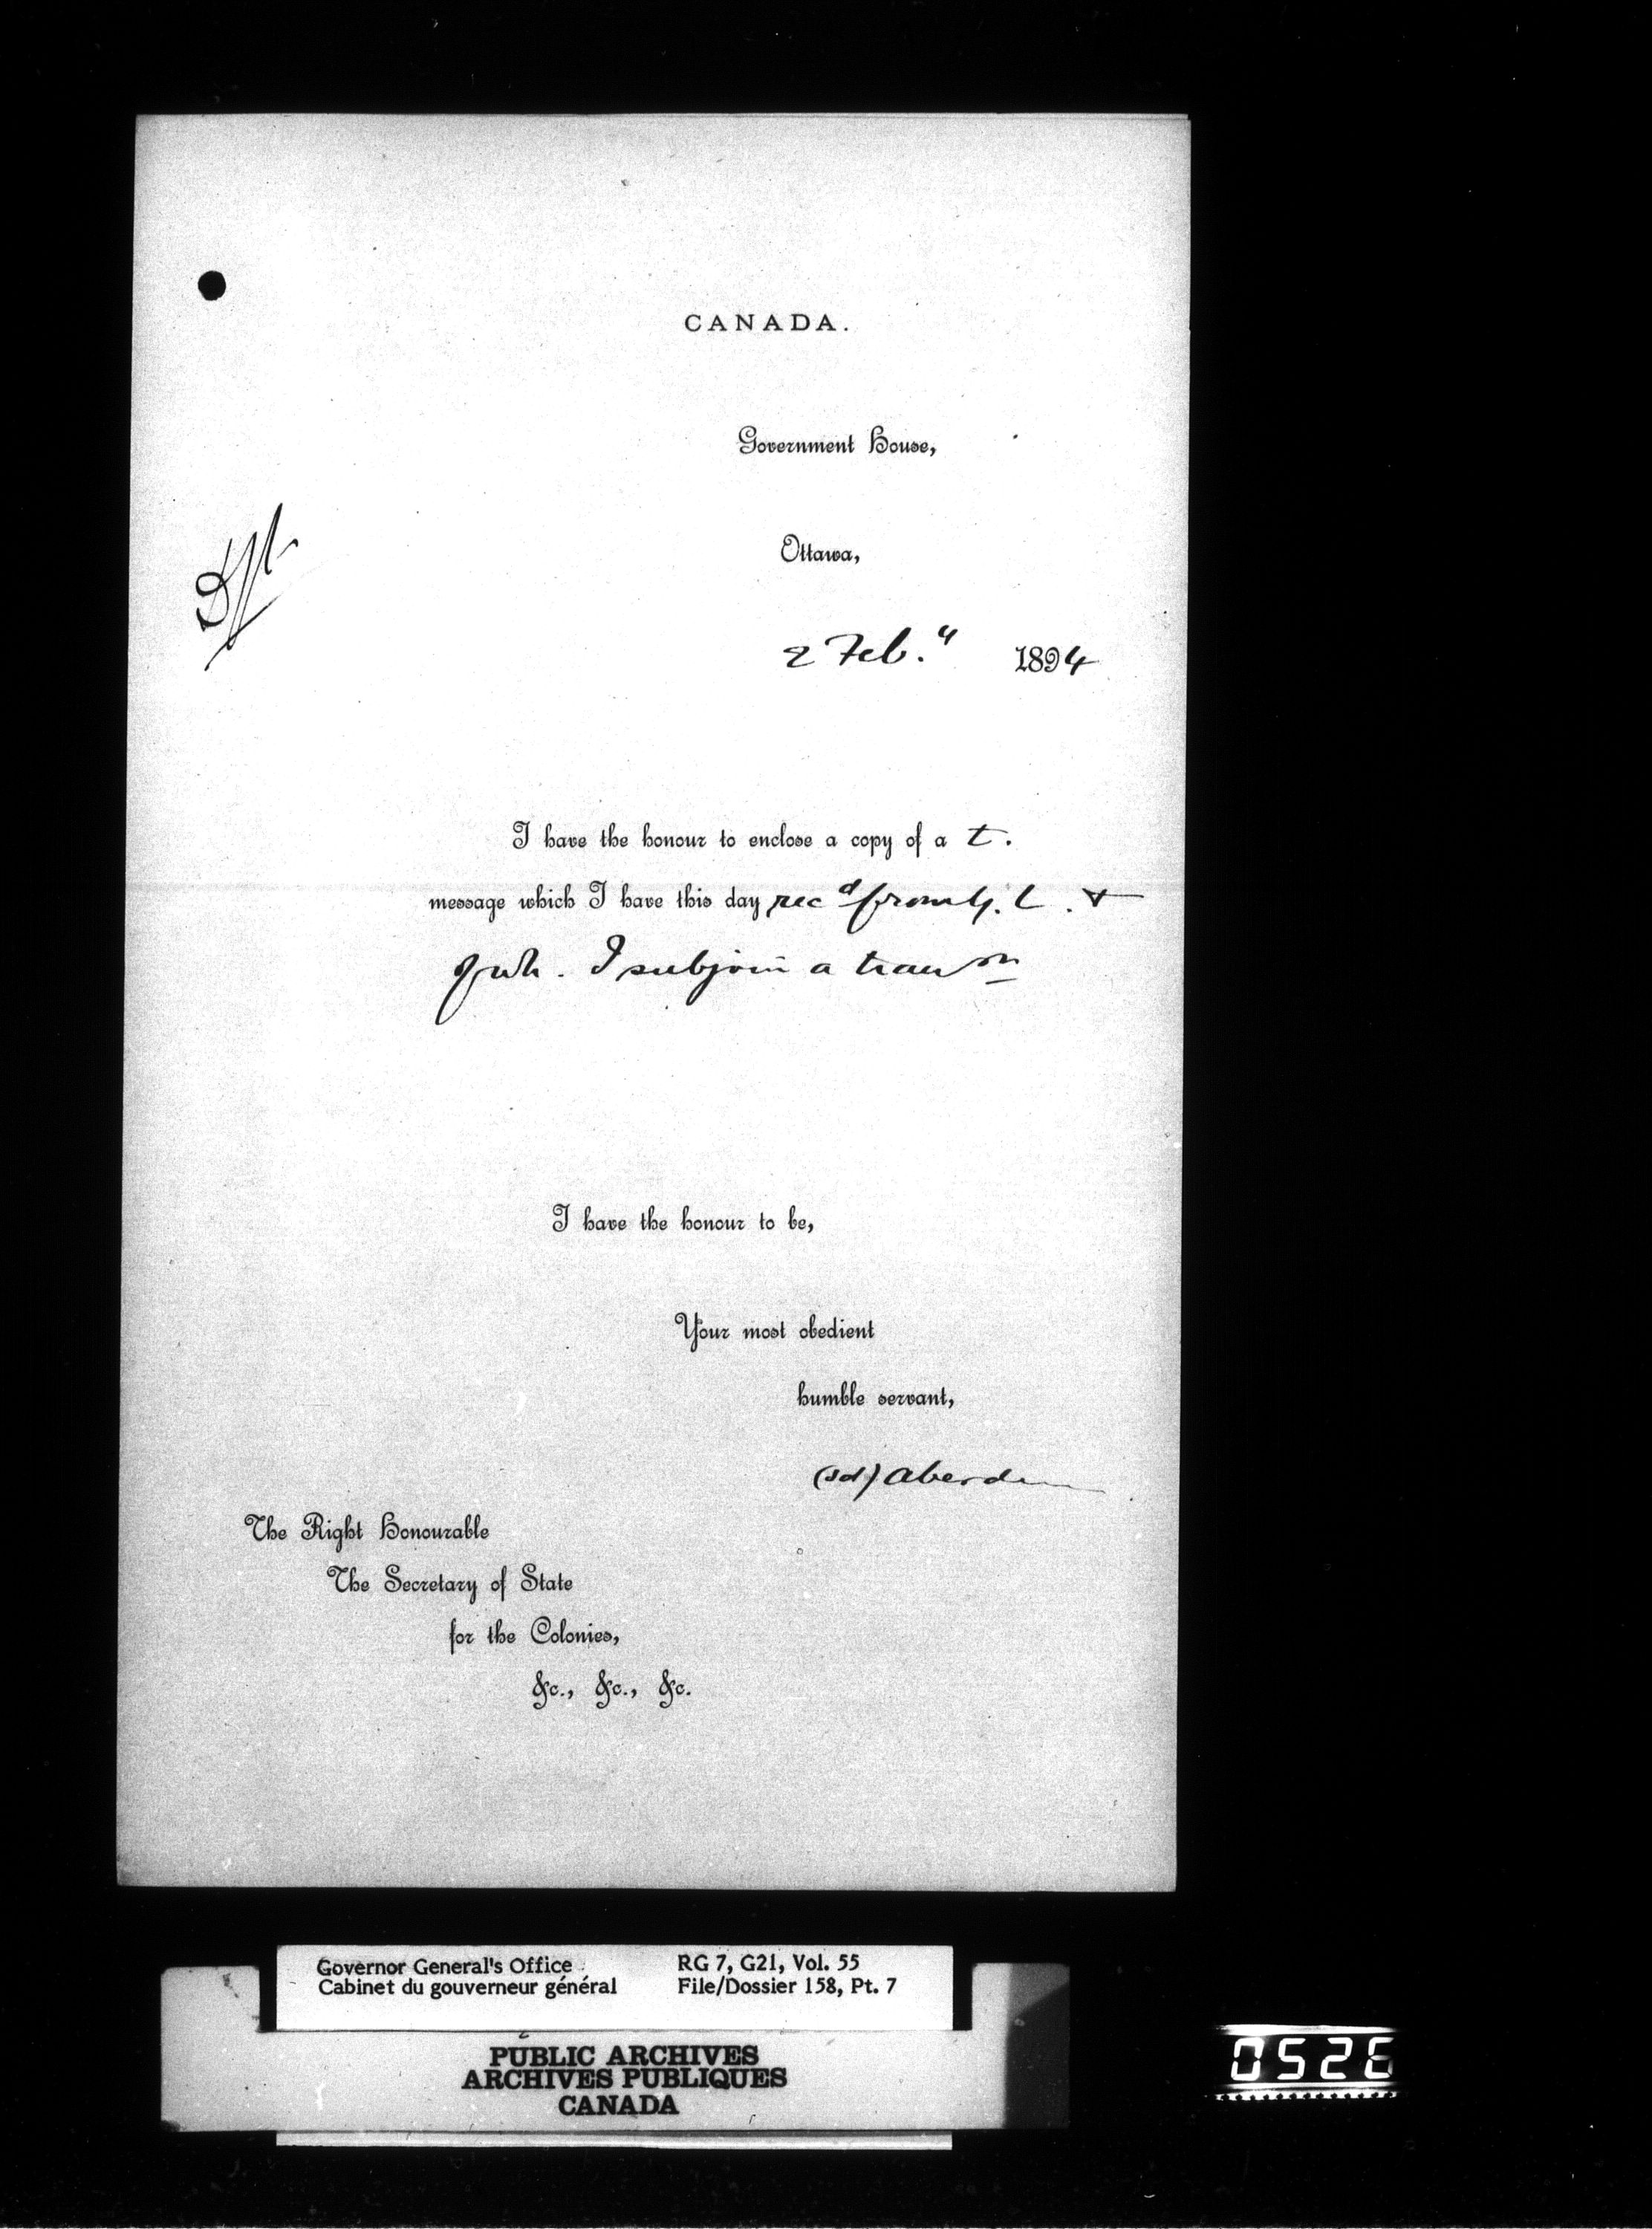 CANADA.
Government House,
Ottawa,
Dft
2 Feb.y 1894
I have the honour to enclose a copy of a t.
message which I have this day recd from y. L. &
of wh. I subjoin a transn
I have the honour to be,
Your most obedient
humble servant,
(sd) Aberdeen
The Right Honourable
The Secretary of State
for the Colonies,
&c., &c., &c.
Governor General's Office RG 7, G21, Vol. 55
Cabinet du gouverneur général File/Dossier 158, Pt. 7
PUBLIC ARCHIVES
ARCHIVES PUBLIQUES
CANADA
0526